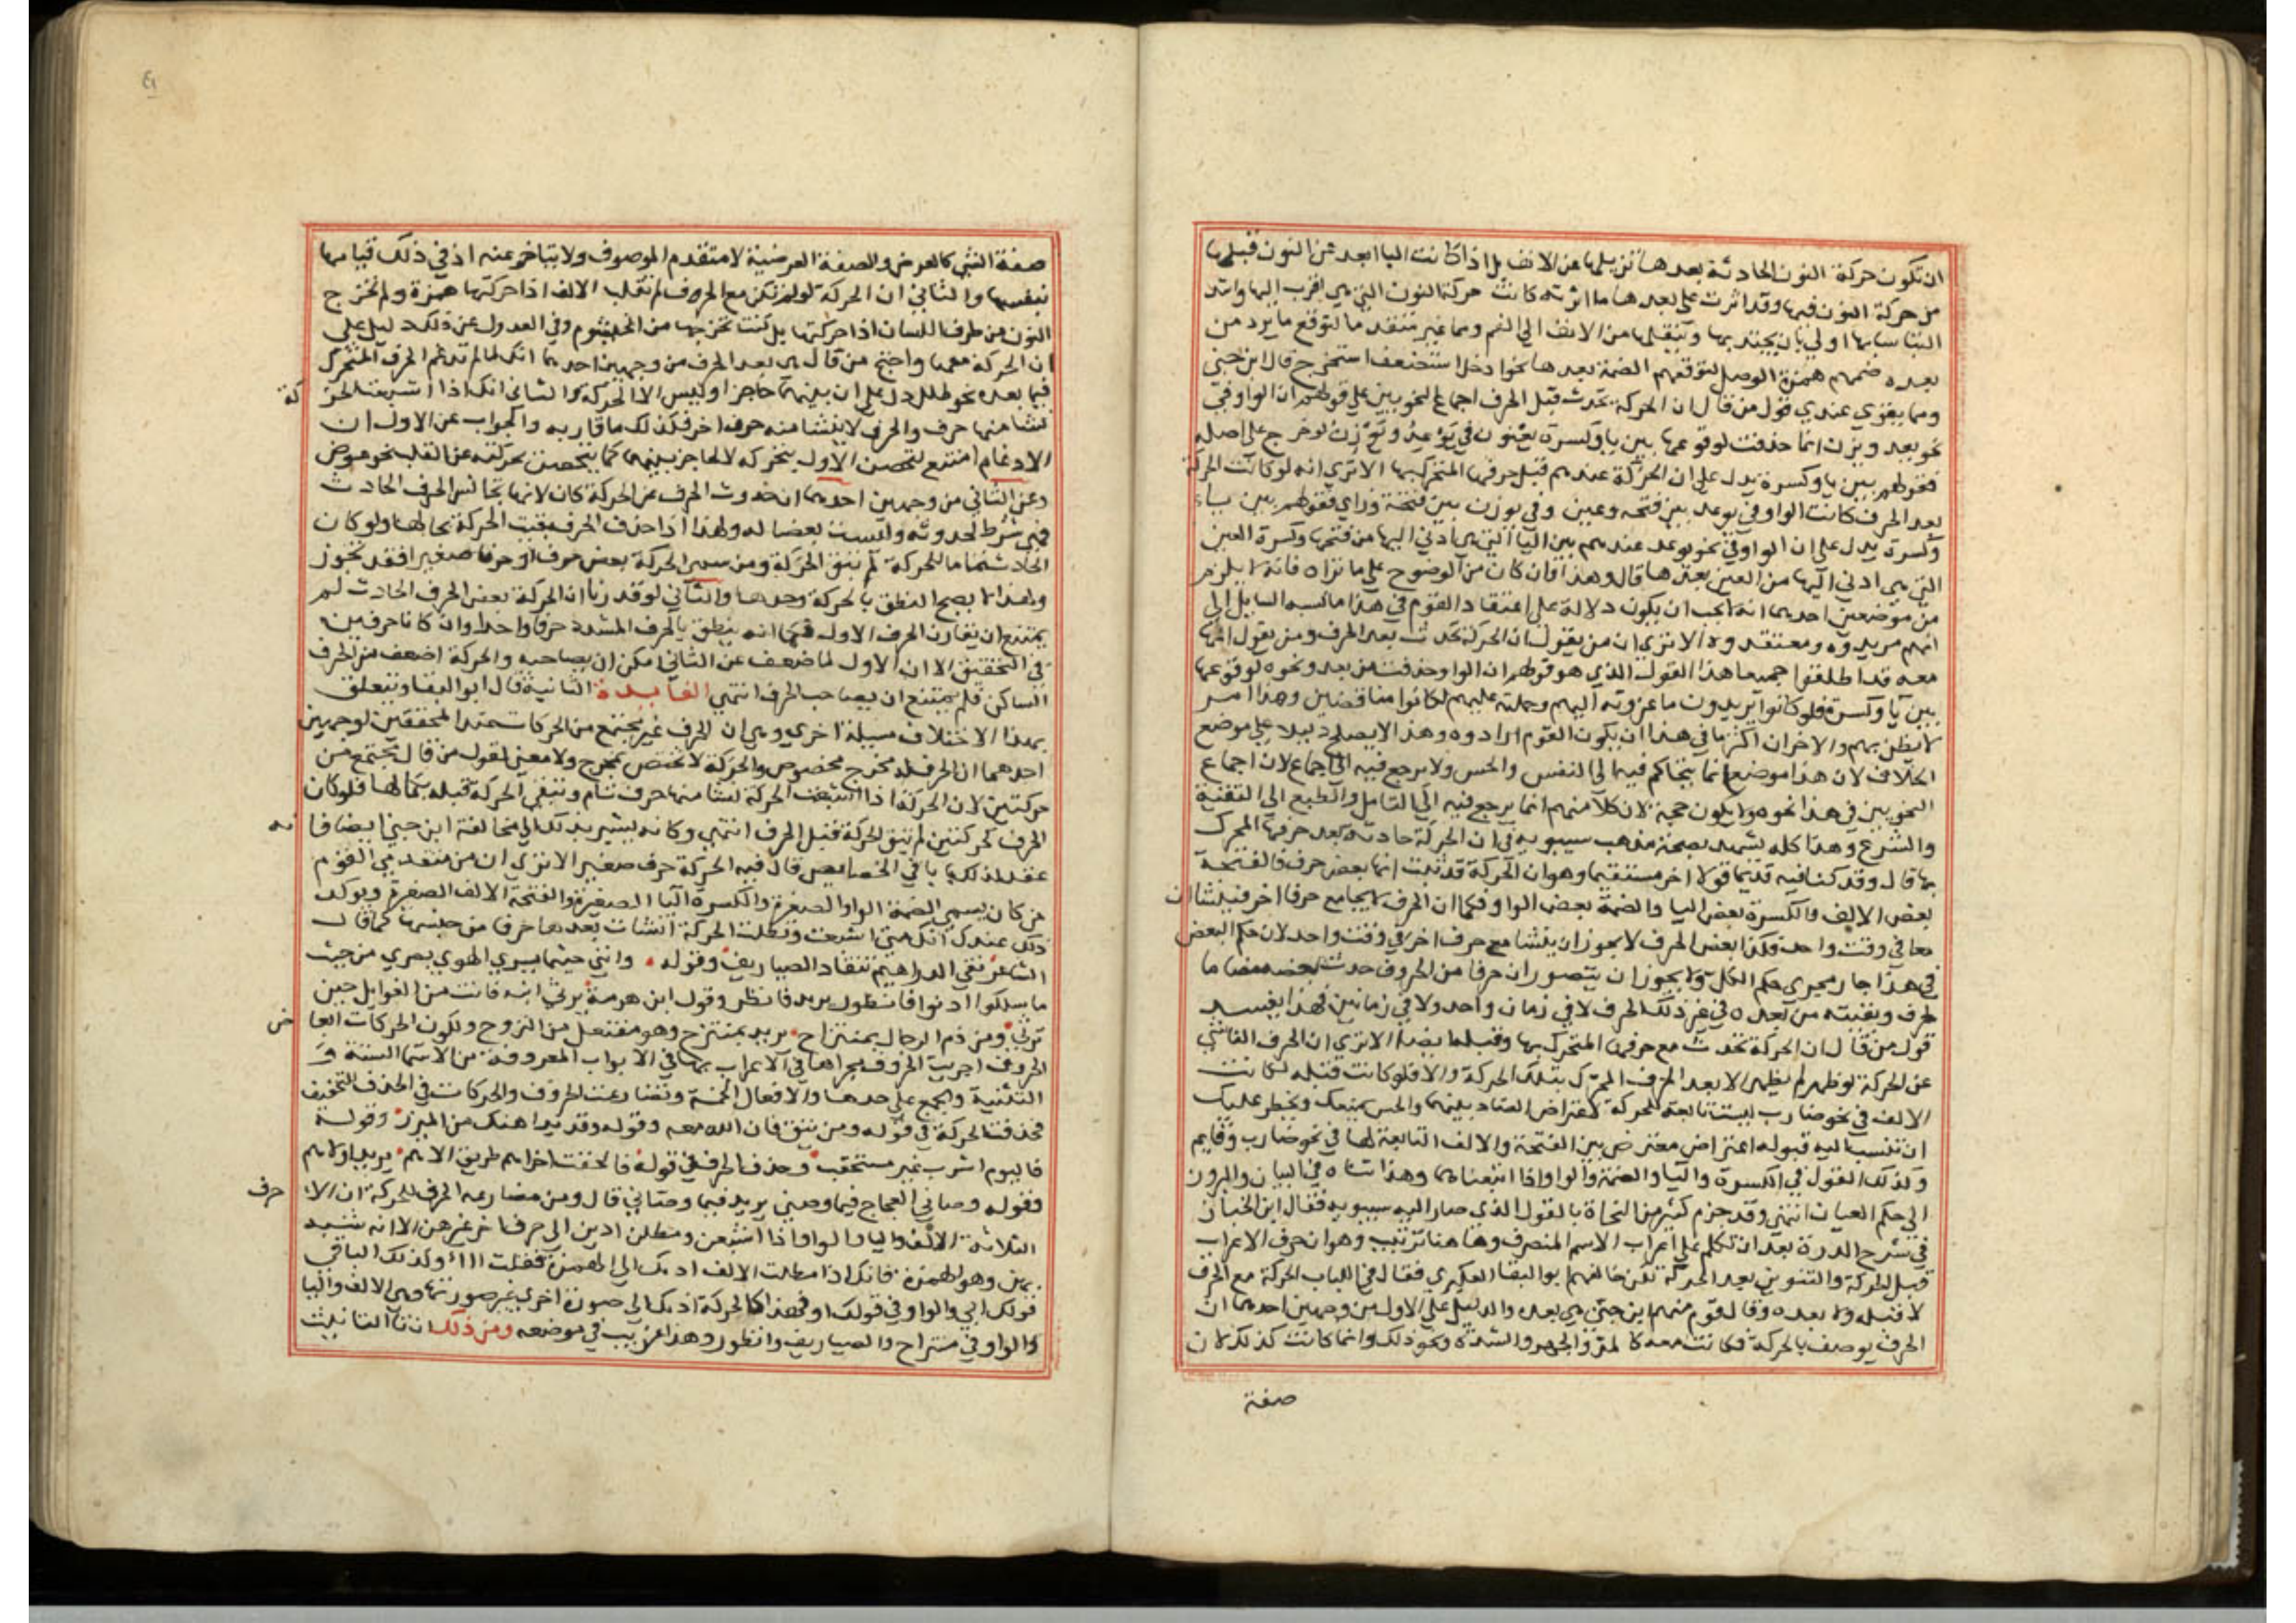 ان تكون حركة النون الحادثة بعدها تزيلها عن الانف بل اذا كانت اليا ابعد من النون قبلها
من حركة النون فيها وقد اثرت على بعدها ما اثرته كانت حركة النون التي هي اقرب اليها واشد
التباسا بها اولى بان يجتذبها وتنقلها من الانف الى الفم ومما غير متقدما لتوقع ما يرد من
بعده ضمهم همزة الوصل لتوقعهم الضمة بعدها نحو ادخل استضعف استخرج قال ابن جني
ومما يقوي عندي قول من قال ان الحركة تحدث قبل الحرف اجماع النحويين على قولهم ان الواو في
نحو يعد ويزن انما حذفت لوقوعها بين يا وكسرة يعنون في يوعد ويوزن لو خرج على اصله
فقولهم بين يا وكسرة يدل على ان الحركة عندهم قبل حرفها المتحرك بها الا ترى انه لو كانت الحركة
بعد الحرف كانت الواو في يوعد بين فتحه وعين وفي يوزن بين فتحة وزاي فقولهم بين ياء
وكسرة يدل على ان الواو في نحو يوعد عندهم بين اليا التي هي ادنى اليها من فتحها وكسرة العين
التي هي ادنى اليها من العين بعدها قال وهذا وان كان من الوضوح على ما تراه فانه لا يلزم
من موضعين احدهما انه لا يجب ان يكون دلالة على اعتقاد القوم في هذا ما نسبه السايل الى
انهم مريدوه ومعتقدوه الا ترى ان من يقول ان الحركة تحدث بعد الحرف ومن يقول انها
معه قد اطلقوا جميعا هذا القول الذي هو قولهم ان الواو حذفت من يعد ونحوه لوقوعها
بين يا وكسرة فلو كانوا يريدون ما عزوته اليهم وحملته عليهم لكانوا مناقضين وهذا امر
لا يظن بهم والاخران اكثر ما في هذا ان يكون القوم ارادوه وهذا لا يصلح دليلا على موضع
الخلاف لان هذا موضع انما يتحاكم فيه الى النفس والحس ولا يرجع فيه الى اجماع لان اجماع
النحويين في هذا نحوه ولا يكون حجة لان كلا منهم انما يرجع فيه الى التامل والطبع الى التقنية
والشرع وهذا كله يشهد بصحة مذهب سيبويه في ان الحركة حادثة بعد حرفها المحرك
بها قال وقد كنا فيه قديما قولا اخر مستقيما وهو ان الحركة قد ثبت انها بعض حرف فالفتحة
بعض الالف والكسرة بعض اليا والضمة بعض الواو فكما ان الحرف لا يجامع حرفا اخر فينشا ان
معا في وقت واحد فكذا بعض الحرف لا يجوز ان ينشا مع حرف اخر في وقت واحد لان حكم البعض
في هذا جار مجرى حكم الكل ولا يجوز ان يتصور ان حرفا من الحروف حدث بعضه مضاما
لحرف وبقيته من بعده في غير ذلك الحرف لا في زمان واحد ولا في زمانين فهذا يفسد
قول من قال ان الحركة تحدث مع حرفها المتحرك بها وقبله ايضا الا ترى ان الحرف الناشي
عن الحركة لو ظهر لم يظهر الا بعد الحرف المحرك بتلك الحركة والا فلو كانت قبله لكانت
الالف في نحو ضارب ليست تابعة للحركة لاعتراض الضاد بينهما والحس يمنعك ويحظر عليك
ان تنسب اليه قبوله اعتراض معترض بين الفتحة والالف التابعة لها في نحو ضارب وقايم
وكذلك القول في الكسرة واليا والضمة والواو اذا اتبعتاهما وهذا تناه في البيان والبروز
الى حكم العيان انتهى وقد جزم كثير من النحاة بالقول الذي صار اليه سيبويه فقال ابن الخباز
في شرح الدرة بعد ان تكلم على اعراب الاسم المنصرف وهاهنا ترتيب وهو ان حرف الاعراب
قبل الحركة والتنوين بعد الحركة لكن خالفهم ابو البقا العكبري فقال في اللباب الحركة مع الحرف
لا قبله ولا بعده وقال قوم منهم ابن جني هي بعده والدليل على الاول من وجهين احدهما ان
الحرف يوصف بالحركة فكانت معه كالمد والجهر والشدة ونحو ذلك وانما كانت كذلك لان
صفة
صفة الشي كالعرض والصفة العرضية لا متقدم الموصوف ولا يتاخر عنه اذ في ذلك قيامها
بنفسها والثاني ان الحركة لو لم تكن مع الحرف لم تقلب الالف اذا حركتها همزة ولم تخرج
النون من طرف اللسان اذا حركتها بل كنت تخرجها من الخيشوم وفي العدول عن ذلك دليل على
ان الحركة معها واحتج من قال هي بعد الحرف من وجهين احدهما انك لما لم تدغم الحرف المتحرك
فيما بعده نحو طلل دل على ان بينهما حاجزا وليس الا الحركة والثاني انك اذا اشبعت الحر
كة
نشا منها حرف والحرف لا ينشا منه حرف اخر فكذلك ما قاربه والجواب عن الاول ان
الادغام امتنع لتحصن الاول بتحركه لا لحاجز بينهما كما يتحصن بحركته عن القلب نحو عوض
وعن الثاني من وجهين احدهما ان حدوث الحرف عن الحركة كان لانها تجانس الحرف الحادث
فهي شرط لحدوثه وليست بعضا له ولهذا اذا حذف الحرف بقيت الحركة بحالها ولو كان
الحادث تماما للحركة لم تبق الحركة ومن سمى الحركة بعض حرف او حرفا صغيرا فقد تجوز
ولهذا لا يصح النطق بالحركة وحدها والثاني لو قدرنا ان الحركة بعض الحرف الحادث لم
يمتنع ان يقارن الحرف الاول كما انه ينطق بالحرف المشدد حرفا واحدا وان كانا حرفين
في التحقيق الا ان الاول لما ضعف عن الثاني امكن ان يصاحبه والحركة اضعف من الحرف
الساكن فلم يمتنع ان يصاحب الحرف انتهى الفايدة الثانية قال ابو البقا ويتعلق
بهذا الاختلاف مسئلة اخرى وهي ان الحرف غير مجتمع من الحركات عند المحققين لوجهين
احدهما ان الحرف له مخرج مخصوص والحركة لا تختص بمخرج ولا معنى لقول من قال يجتمع من
حركتين لان الحركة اذا اشبعت الحركة نشا منها حرف تام وتبقى الحركة قبله بكمالها فلو كان
الحرف حركتين لم تبق الحركة قبل الحرف انتهى وكانه يشير بذلك الى مخالفة ابن جني ايضا فا
نه
عقد لذلك بابا في الخصايص قال فيه الحركة حرف صغير الا ترى ان من متقدمي القوم
من كان يسمي الضمة الواو الصغيرة والكسرة اليا الصغيرة والفتحة الالف الصغيرة ويوكد
ذلك عندك انك متى اشبعت ومطلت الحركة انشات بعدها حرفا من جنسها كما قال
الشاعر نفي الدراهيم تنقاد الصياريف وقوله وانني حيثما يسري الهوى بصري من حيث
ما سلكوا ادنو فانظور يريد فانظر وقول ابن هرمة يرثي ابنه فانت من الغوايل حين
ترمى ومن ذم الرجال بمنتزاح يريد بمنتزح وهو مفتعل من النزوح ولكون الحركات ابعا
ض
الحروف اجريت الحروف مجراها في الاعراب بها في الابواب المعروفة من الاسما الستة و
التثنية والجمع على حدها والافعال الخمسة وتضارعت الحروف والحركات في الحذف للتخفيف
فحذفت الحركة في قوله ومن يتق فان الله معه وقوله وقد بدا هنك من الميزر وقوله
فاليوم اشرب غير مستحقب وحذف الحرف في قوله فالحقت اخراهم طريق الاهم يريد اولاهم
وقوله وصاني العجاج فيما وصني يريد فيما وصاني قال ومن مضارعة الحرف للحركة ان الا
حرف
الثلاثة الالف واليا والواو اذا اشبعن ومطلن ادين الى حرف اخر غيرهن الا انه شبيه
بهن وهو الهمزة فانك اذا مطلت الالف ادتك الى الهمزة فقلت ااا وكذلك اليا في
قولك ابي والواو في قولك او فهذا كالحركة اذ تك الى صورة اخرى غير صورتها وهي الالف واليا
والواو في منتزاح والصياريف وانظور وهذا غريب في موضعه ومن ذلك ان تا التانيث